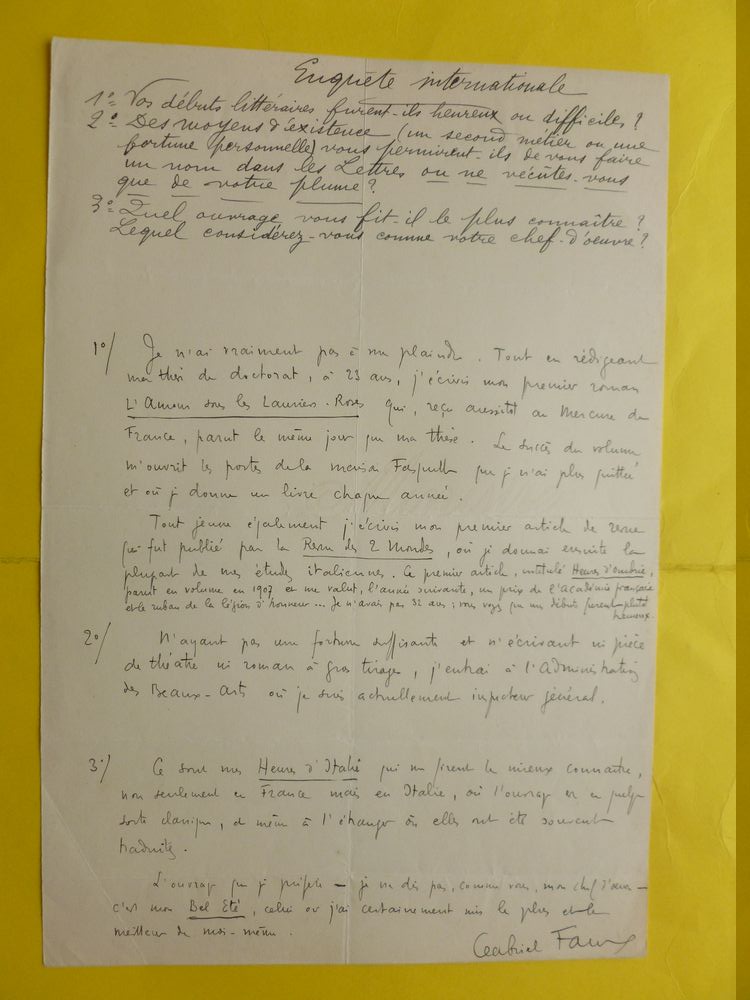 Enquête internationale
1º= Vos débuts littéraires furent-ils heureux ou difficiles ?
2º= Des moyens d'existence (un second métier ou une
fortune personnelle) vous permirent-ils de vous faire
un nom dans les Lettres ou ne vécûtes-vous
que de votre plume ?
3º= Quel ouvrage vous fit-il le plus connaître ?
Lequel considérez-vous comme votre chef-d'œuvre ?
1º/ Je n'ai vraiment pas à me plaindre. Tout en rédigeant
ma thèse de doctorat, à 23 ans, j'écrivis mon premier roman
L'Amour sous les Lauriers-Roses qui, reçu aussitôt au Mercure de
France, parut le même jour que ma thèse. Le succès du volume
m'ouvrit les portes de la maison Fasquelle que je n'ai plus quittée
et où je donne un livre chaque année.
Tout jeune également j'écrivis mon premier article de revue
qui fut publié par la Revue des 2 Mondes, où je donnai ensuite la
plupart de mes études italiennes. Ce premier article, intitulé Heures d'Ombrie,
parut en volume en 1907 et me valut, l'année suivante, un prix de l'Académie française
et le ruban de la légion d'honneur... Je n'avais pas 32 ans ; vous voyez que mes débuts furent plutôt
heureux.
2º/ N'ayant pas une fortune suffisante et n'écrivant ni pièce
de théâtre ni roman à gros tirages, j'entrai à l'Administration
des Beaux-Arts où je suis actuellement inspecteur général.
3º/ Ce sont mes Heures d'Italie qui me firent le mieux connaître,
non seulement en France mais en Italie, où l'ouvrage est en quelque
sorte classique, et même à l'étranger où elles ont été souvent
traduites.
L'ouvrage que je préfère — je ne dis pas, comme vous, mon chef d'œuvre —
c'est mon Bel Eté, celui où j'ai certainement mis le plus et le
meilleur de moi-même.
Gabriel Faure